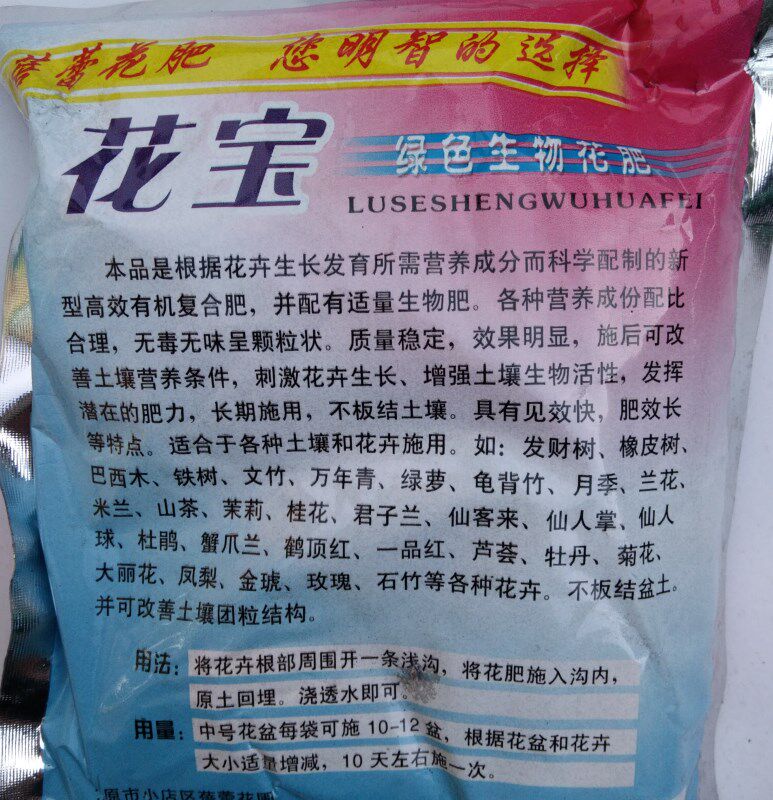 蕾花肥 您明智的选择
花宝
绿色生物花肥
LUSESHENGWUHUAFEI
本品是根据花卉生长发育所需营养成分而科学配制的新
型高效有机复合肥，并配有适量生物肥。各种营养成份配比
合理，无毒无味呈颗粒状。质量稳定，效果明显，施后可改
善土壤营养条件，刺激花卉生长、增强土壤生物活性，发挥
潜在的肥力，长期施用，不板结土壤。具有见效快，肥效长
等特点。适合于各种土壤和花卉施用。如：发财树、橡皮树、
巴西木、铁树、文竹、万年青、绿萝、龟背竹、月季、兰花、
米兰、山茶、茉莉、桂花、君子兰、仙客来、仙人掌、仙人
球、杜鹃、蟹爪兰、鹤顶红、一品红、芦荟、牡丹、菊花、
大丽花、凤梨、金琥、玫瑰、石竹等各种花卉。不板结盆土。
并可改善土壤团粒结构。
用法：将花卉根部周围开一条浅沟，将花肥施入沟内，
原土回埋。浇透水即可。
用量：中号花盆每袋可施10-12盆，根据花盆和花卉
大小适量增减，10天左右施一次。
原市小店区蓓蕾花肥